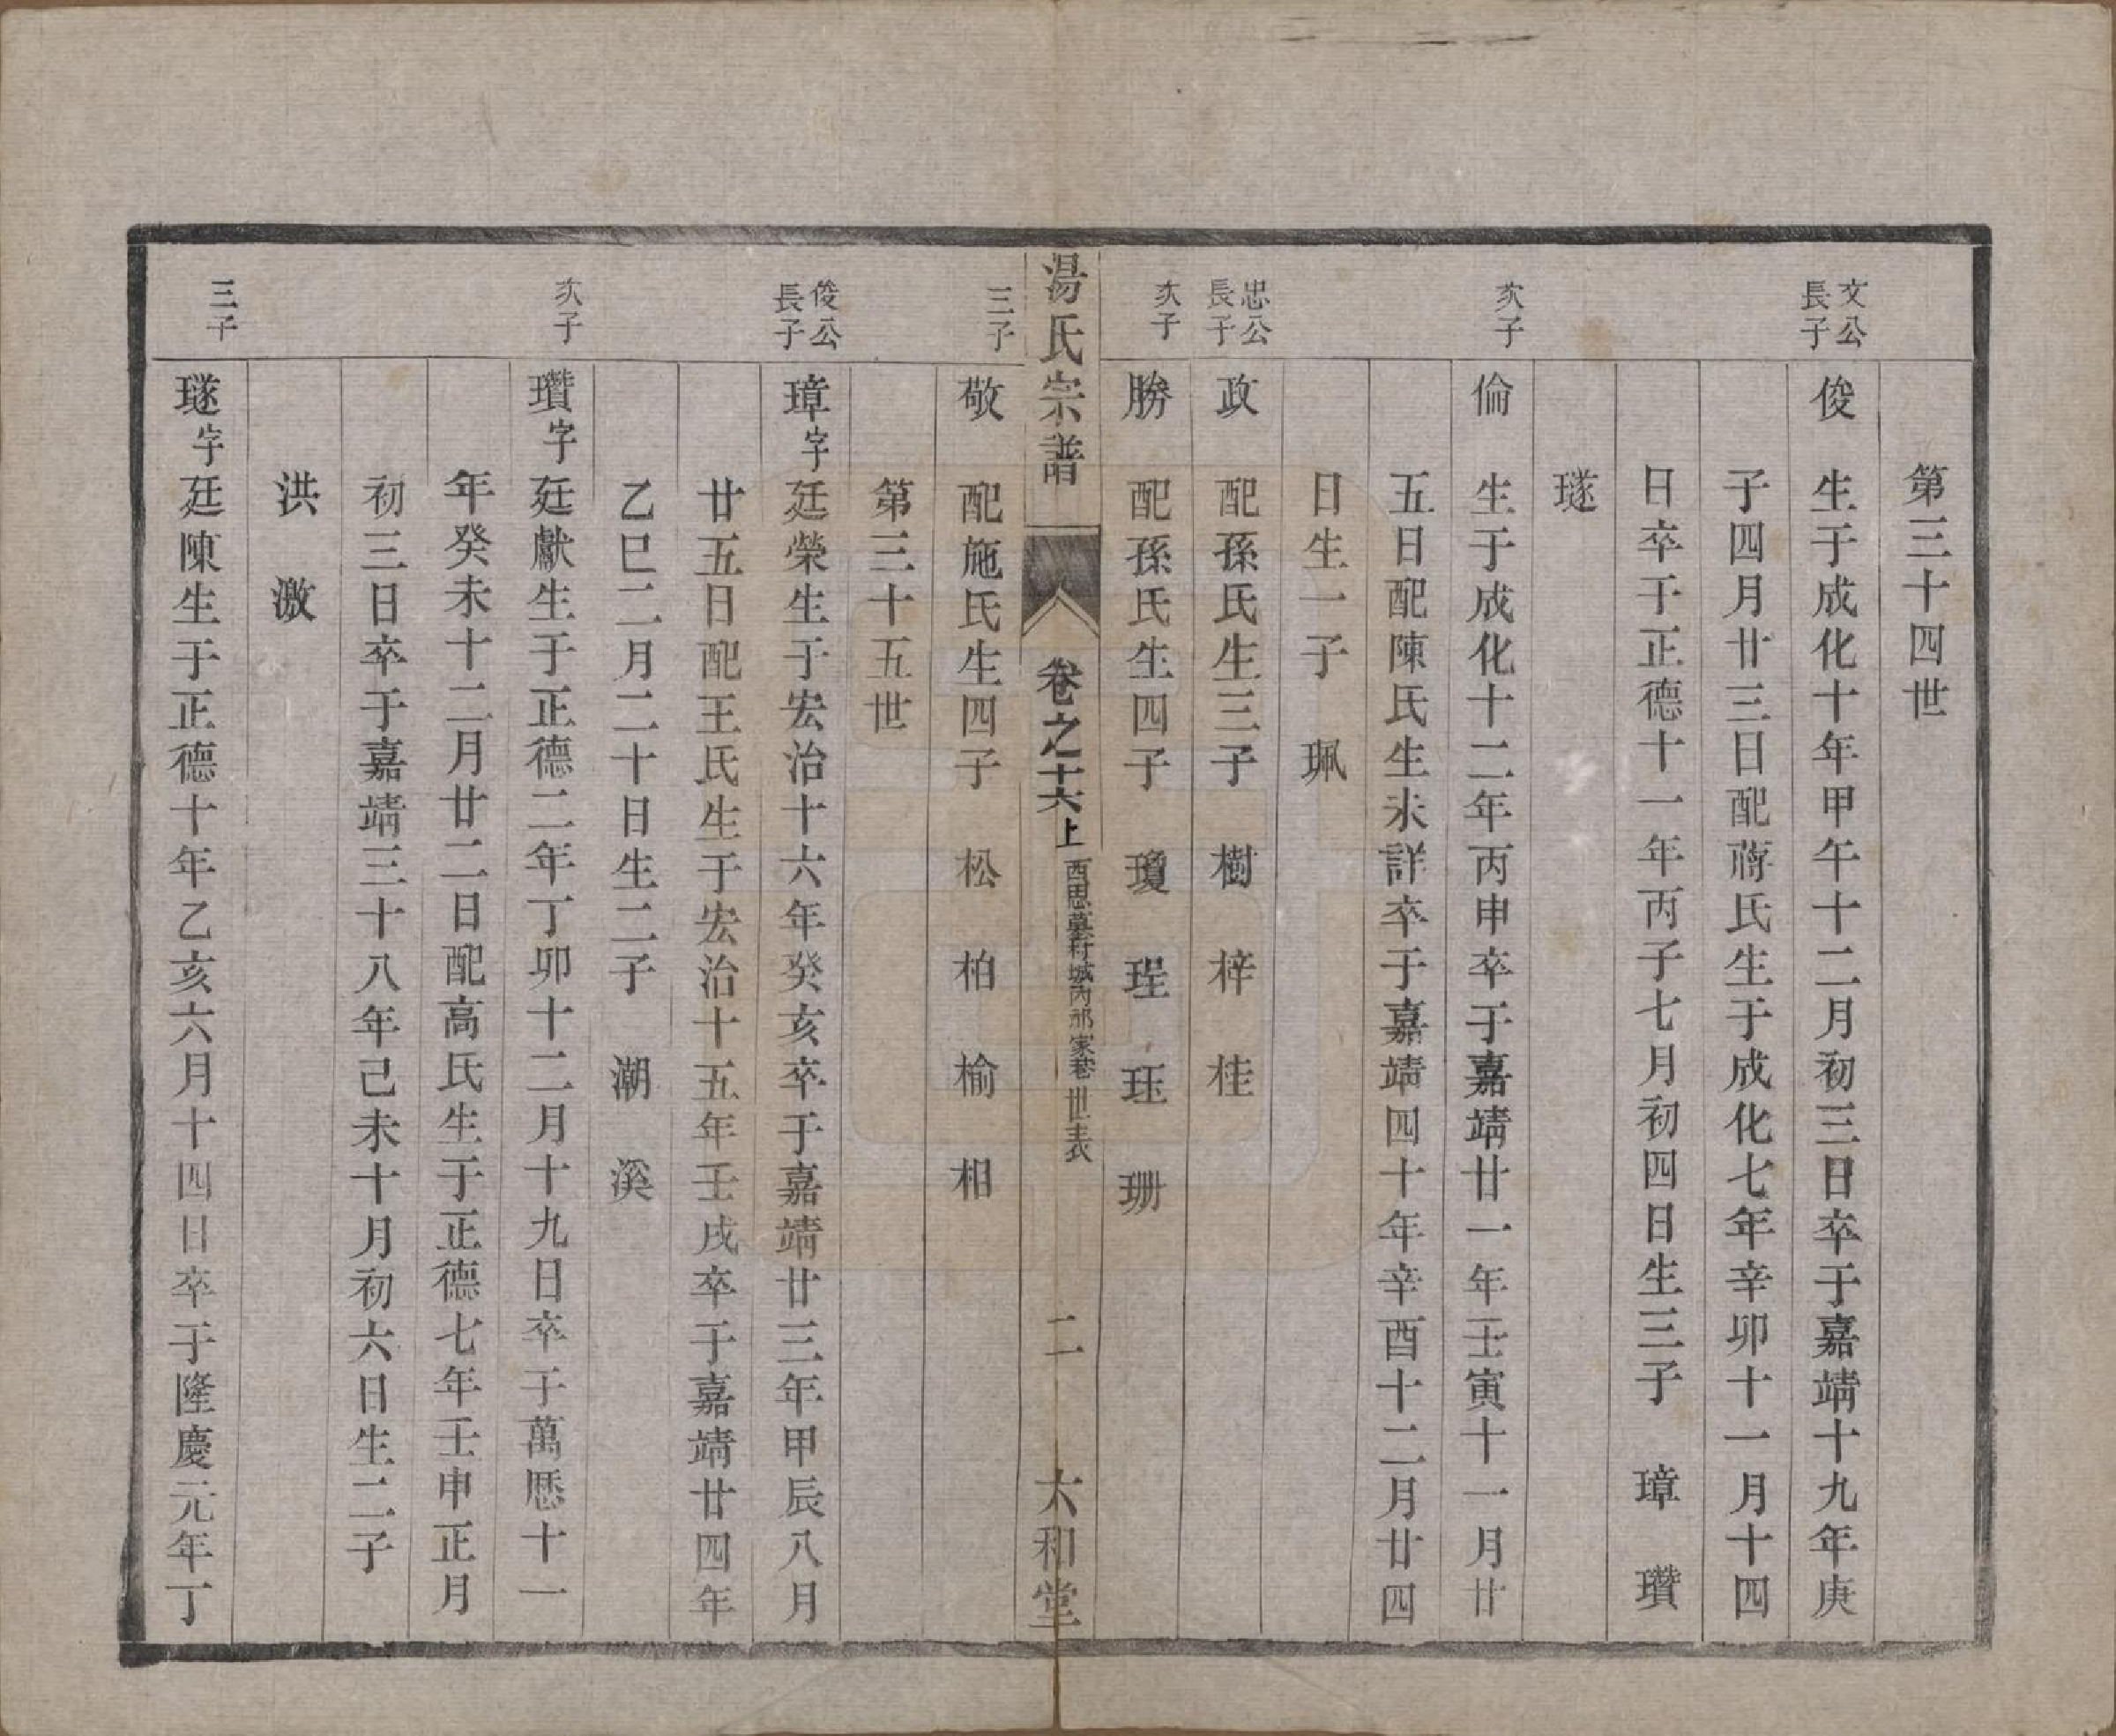 第三十四世
文公長子
俊　生于成化十年甲午十二月初三日卒于嘉靖十九年庚
子四月廿三日配蔣氏生于成化七年辛卯十一月十四
日卒于正德十一年丙子七月初四日生三子　璋　瓚
璲
次子
倫　生于成化十二年丙申卒于嘉靖廿一年壬寅十一月廿
五日配陳氏生未詳卒于嘉靖四十年辛酉十二月廿四
日生一子　珮
忠公長子
政　配孫氏生三子　樹　梓　桂
次子
勝　配孫氏生四子　瓊　珵　珏　珊
湯氏宗譜　卷之十六上　西思墓村城內邢家巷世表　二　六和堂
三子
敬　配施氏生四子　松　柏　榆　相
第三十五世
俊公長子
璋字廷榮生于宏治十六年癸亥卒于嘉靖廿三年甲辰八月
廿五日配王氏生于宏治十五年壬戌卒于嘉靖廿四年
乙巳二月二十日生二子　潮　溪
次子
瓚字廷獻生于正德二年丁卯十二月十九日卒于萬厯十一
年癸未十二月廿二日配高氏生于正德七年壬申正月
初三日卒于嘉靖三十八年己未十月初六日生二子
洪　激
三子
璲字廷陳生于正德十年乙亥六月十四日卒于隆慶元年丁